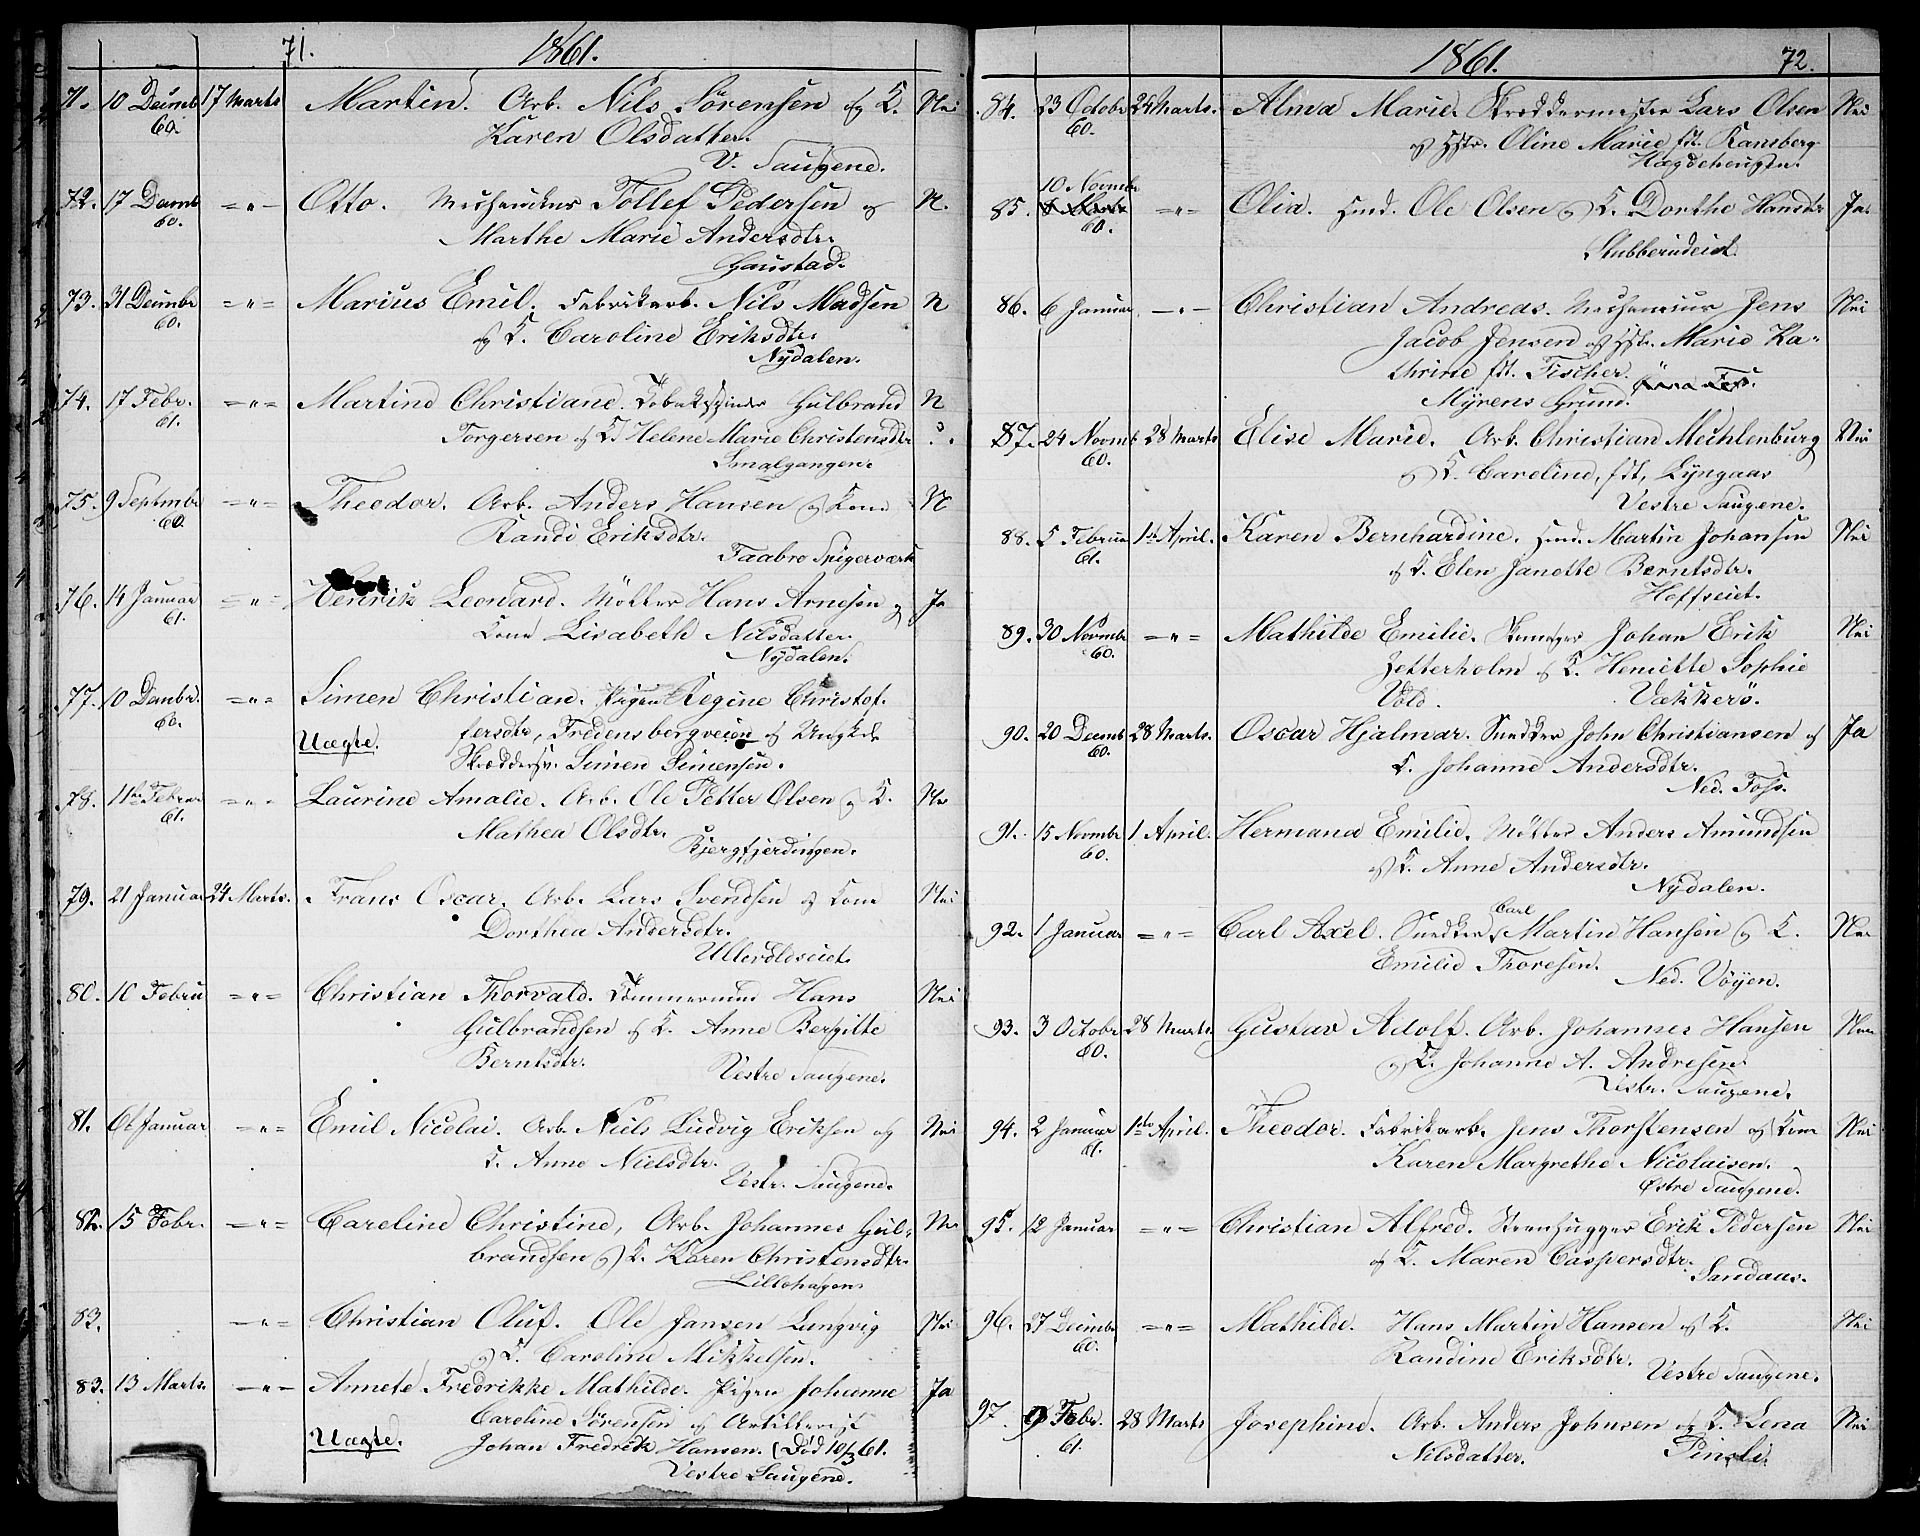 71. 1861.
71. 10 Decmb 17 Marts Martin. Arb. Nils Sörensen og K. Nei
60. Karen Olsdatter.
V. Saugene.
72. 17 Decmb -"- Otto. Mechanicus Tollef Pedersen og N.
60. Marthe Marie Andersdtr.
Gaustad.
73. 31 Decmbr ="= Marius Emil. Fabrikarb. Nils Madsen N
60. og K. Caroline Eriksdtr.
Nydalen.
74. 17 Febr. ="= Martine Christiane. Tobakspinder Gulbrand N
61. Torgersen og K. Helene Marie Christensdtr ?.
Smalgangen.
75. 9 Septmbr ="= Theodor. Arb. Anders Hansen og Kone N
60. Randi Eriksdtr.
Taabro Spigerværk
76. 14 Januar ="= Henrik Leonard. Møller Hans Arnesen og Ja
61. Kone Lisabeth Nilsdatter.
Nydalen.
77. 10 Decmbr. ="= Simen Christian. Pigen Regine Christof-
60. fersdtr, Fredensborgveien og Ungkarl
Uægte. Skræddersv. Simen Simensen.
78. 11te Februar ="= Laurine Amalie. Arb. Ole Petter Olsen og K. Nei
61. Mathea Olsdtr.
Bjergfjerdingen.
79. 21 Januar 24 Marts. Frans Oscar. Arb. Lars Svendsen og Kone Nei
Dorthea Andersdtr.
Ullevoldseiet.
80. 10 Febru ="= Christian Thorvald. Tömmermand Hans Nei
Gulbrandsen og K. Anne Bergitte
Berntsdtr. Vestre Saugene.
81. 6 Januar ="= Emil Nicolai. Arb. Niels Ludvig Eriksen og Nei
K. Anne Nielsdtr.
Vestr. Saugene.
82. 15 Febr. ="= Caroline Christine, Arb. Johannes Gul- Nei
brandsen og K. Karen Christensdtr.
Lillohagen.
83. ="= Christian Oluf. Ole Jansen Lungvig Nei
og K. Caroline Mikkelsen.
83. 13 Marts. -"- Annete Fredrikke Mathilde. Pigen Johanne Ja
Caroline Sörensen og Artillerist
Uægte. Johan Fredrik Hansen. (Död 10/3 61.
Vestre Saugene.
1861. 72.
84. 23 Octobr 24 Marts. Alma Marie. Skræddermester Lars Olsen Nei
60. og Hstr. Oline Marie fdt. Ransberg
Hægdehougen.
10 Novmbr
85. ="= Olia. Hmd. Ole Olsen og K. Dorthe Hansdtr Ja.
60. Stubberudeiet.
86. 6 Januar -"- Christian Andreas. Mechanicus Jens Nei
Jacob Jensen og Hstr. Marie Ka-
thrine fdt. Fischer.
Myrens Grund.
87. 24 Novmb 28 Marts Elise Marie. Arb. Christian Mechlenburg Nei
60. og K. Caroline, fdt, Lyngaas
Vestre Saugene.
88. 5 Februar 1ste April. Karen Bernhardine. Hmd. Martin Johansen Nei
61. og K. Elen Janette Berntsdtr.
Hoffseiet.
89. 30 Novmbr ="= Mathilde Emilie. Skomager Johan Erik Nei
60. Zetterholm og K. Henriette Sophie
Vold. Vækkerö.
90. 20 Decmb 28 Marts. Oscar Hjalmar. Snedker John Christiansen og Ja
60. K. Johanne Andersdtr.
Ned. Foss.
91. 15 Novmbr 1 April. Hermana Emilie. Møller Anders Amundsen
60. og K. Anne Andersdtr.
Nydalen.
Carl
92. 1 Januar ="= Carl Axel. Snedker Martin Hansen og K. Nei
Emilie Thoresen.
Ned. Vöyen.
93. 3 Octobr 28 Marts. Gustav Adolf. Arb. Johannes Hansen Nei
60. og K. Johanne A. Andresen.
Vestr. Saugene.
94. 2 Januar 1ste April. Theodor. Fabrikarb. Jens Thorstensen og Kone Nei
61. Karen Margrethe Nicolaisen.
Østre Saugene.
95. 12 Januar ="= Christian Alfred. Stenhugger Erik Pedersen Nei
og K. Maren Caspersdtr.
Sandaas.
96. 27 Decmbr ="= Mathilde. Hans Martin Hansen og K. Nei
60. Randine Eriksdtr.
Vestre Saugene.
97. 9 Febr. 28 Marts Josephine. Arb. Anders Johnsen og K. Lena Nei
61. Nilsdatter. Pinsli.